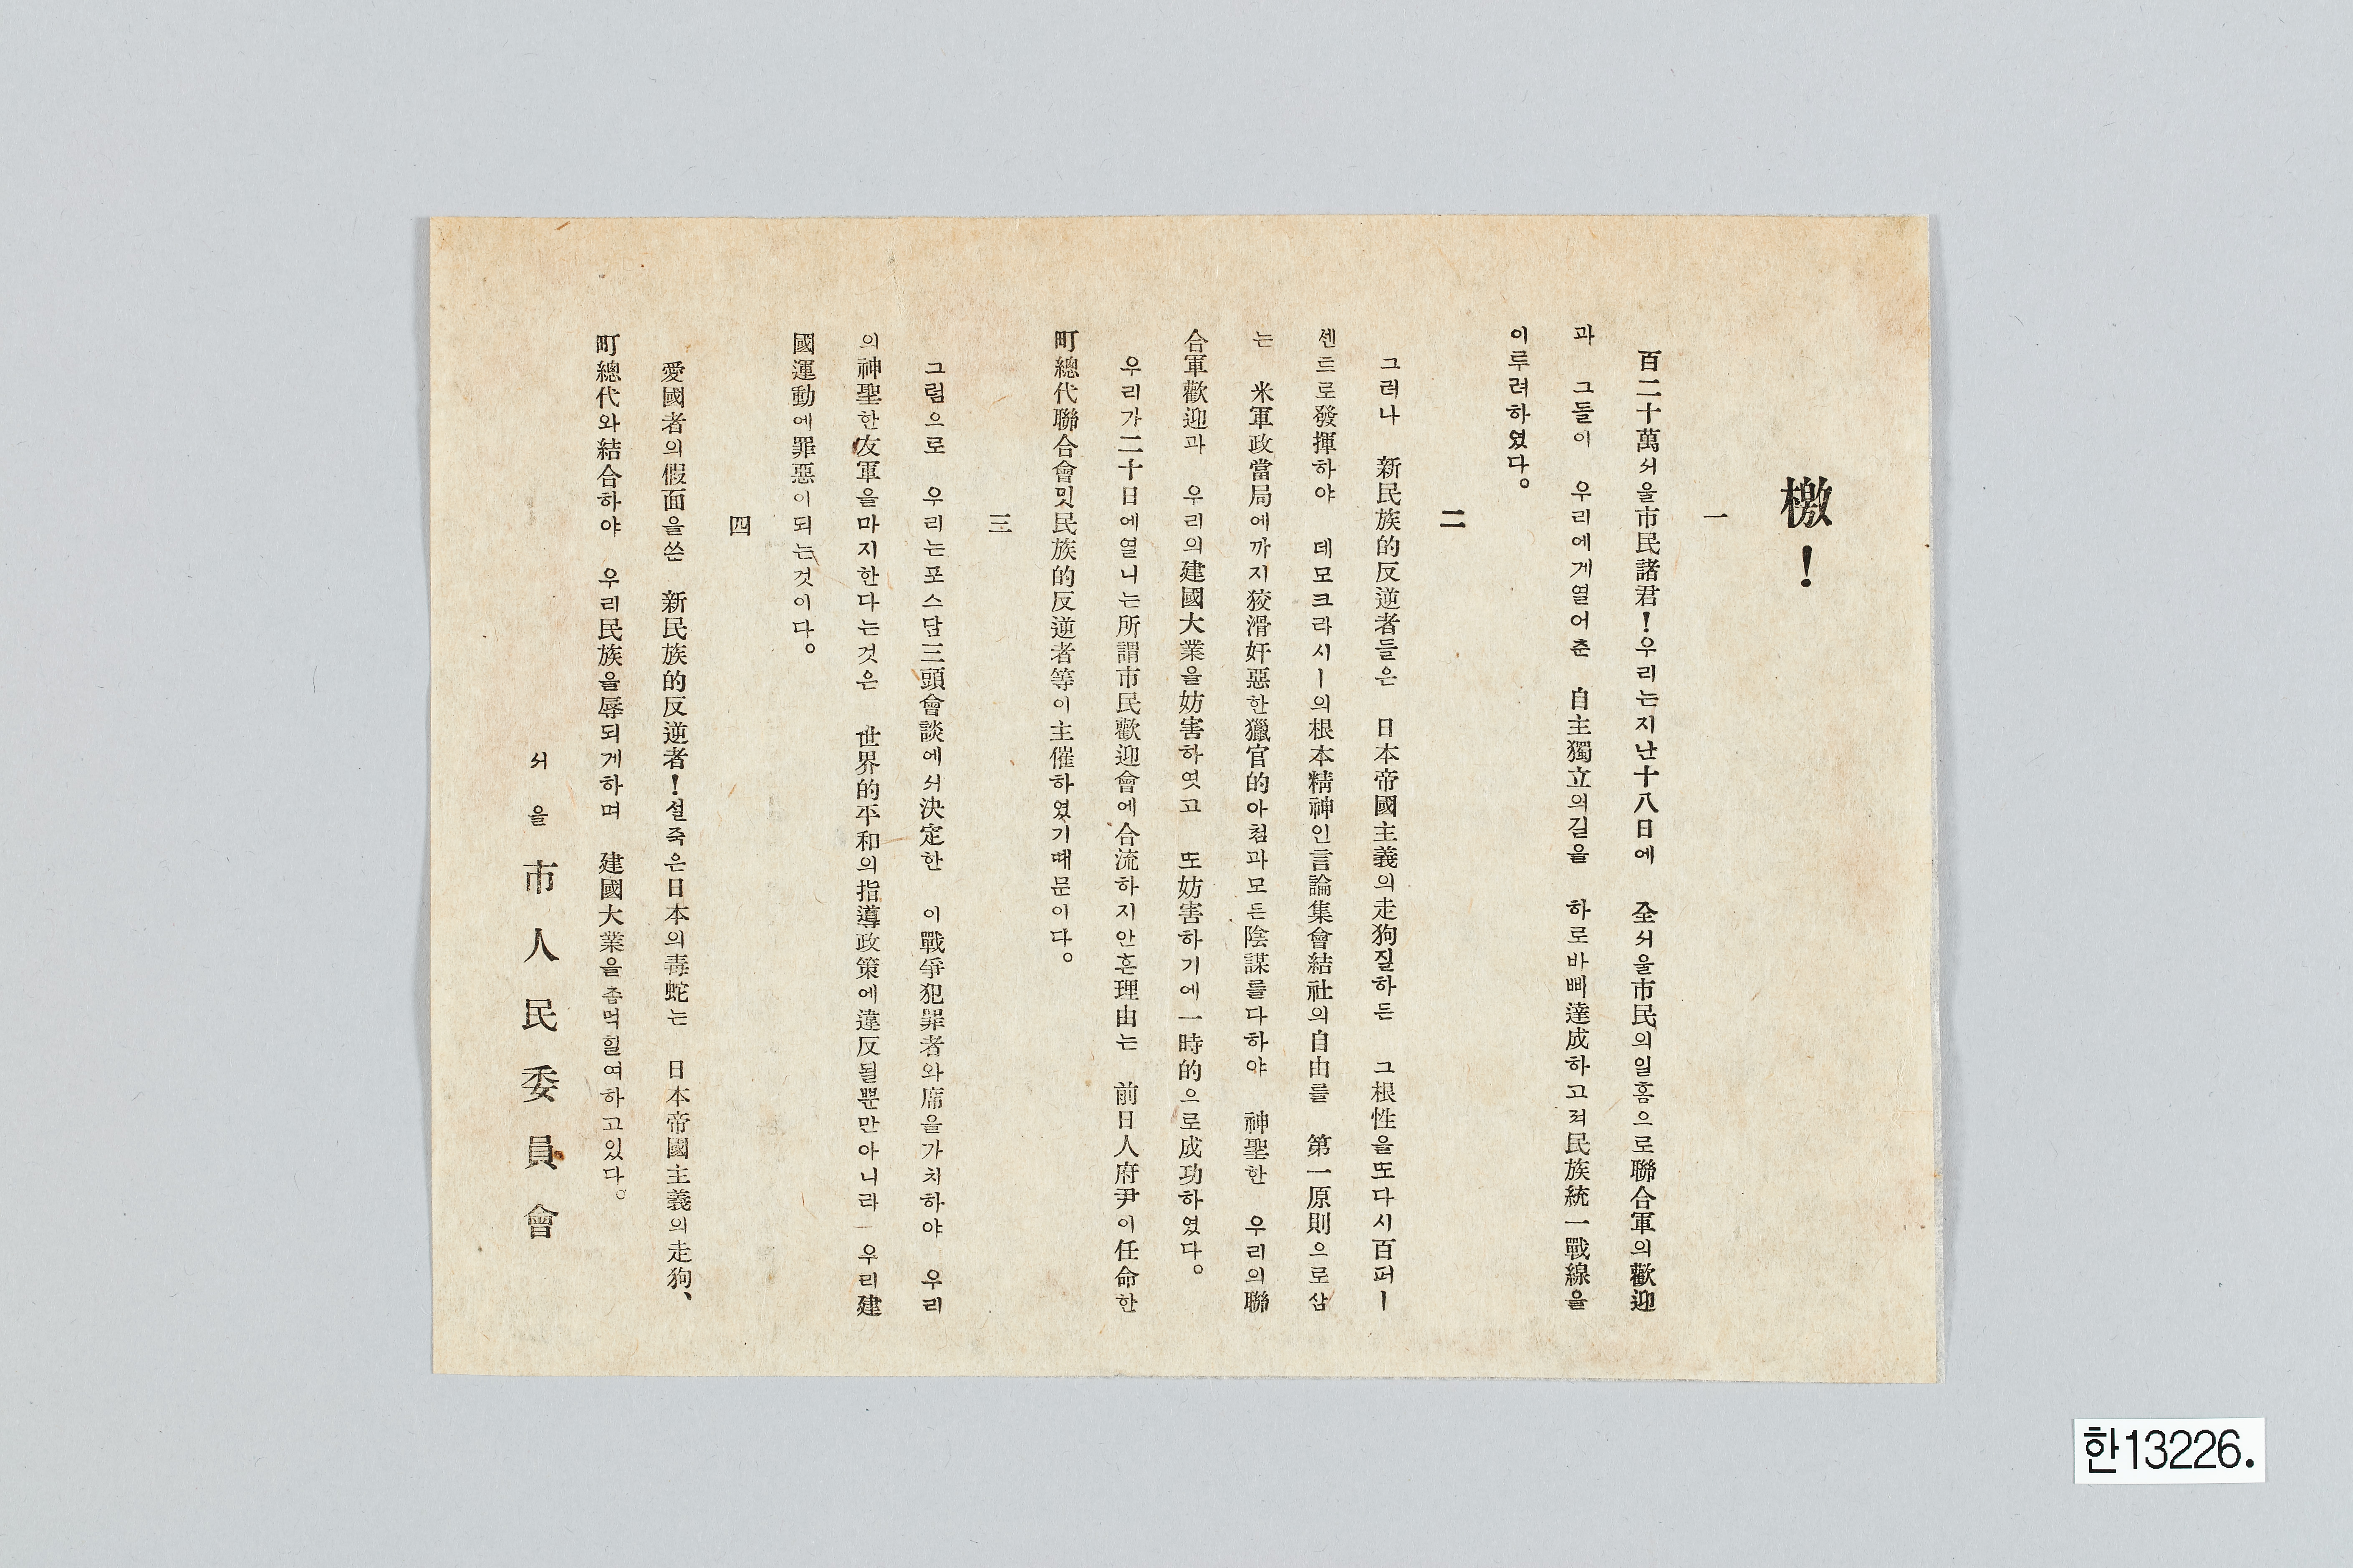 檄!
一
百二十萬서울市民諸君!우리는지난十八日에 全서울市民의일홈으로聯合軍의歡迎
과 그들이 우리에게열어준 自主獨立의길을 하로바삐達成하고저民族統一戰線을
이루려하였다。
二
그러나 新民族的反逆者들은 日本帝國主義의走狗질하든 그根性을또다시百퍼ー
센트로發揮하야 데모크라시ー의根本精神인言論集會結社의自由를 第一原則으로삼
는 米軍政當局에까지狡滑奸惡한獵官的아첨과모든陰謀를다하야 神聖한 우리의聯
合軍歡迎과 우리의建國大業을妨害하엿고 또妨害하기에一時的으로成功하였다。
우리가二十日에열니는所謂市民歡迎會에合流하지안흔理由는 前日人府尹이任命한
町總代聯合會밋民族的反逆者等이主催하였기때문이다。
三
그럼으로 우리는포스담三頭會談에서決定한 이戰爭犯罪者와席을가치하야 우리
의神聖한友軍을마지한다는것은 世界的平和의指導政策에違反될뿐만아니라 우리建
國運動에罪惡이되는것이다。
四
愛國者의假面을쓴 新民族的反逆者!설죽은日本의毒蛇는 日本帝國主義의走狗、
町總代와結合하야 우리民族을辱되게하며 建國大業을좀먹힐여하고있다。
서울市人民委員會
한13226.